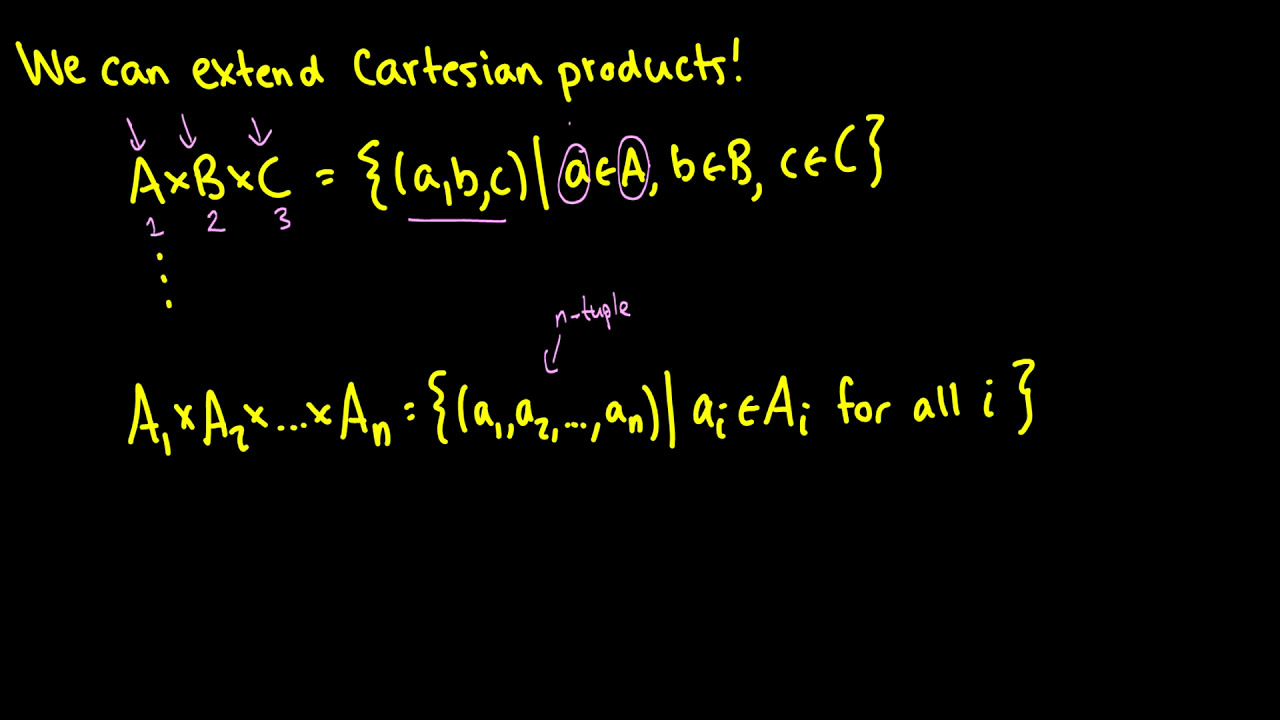 We can extend Cartesian products!
A×B×C = {(a,b,c)| a∈A, b∈B, c∈C}
1 2 3
⋮
n-tuple
A₁×A₂×...×Aₙ = {(a₁,a₂,...,aₙ)| aᵢ∈Aᵢ for all i}